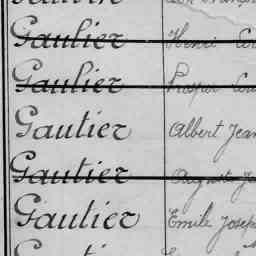 Gautier Henri
Gautier Prosper
Gautier Albert Jean
Gautier Auguste
Gautier Emile Josep